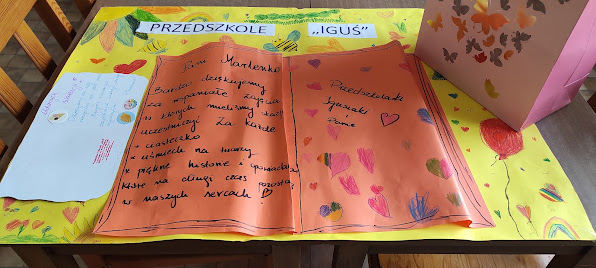 PRZEDSZKOLE „IGUŚ"
Pani Marlenko
Bardzo dziękujemy
za wspaniałe zajęcia
w których mieliśmy
uczestniczyć. Za każde
ciasteczko
uśmiech na twarzy
piękne historie i opowiadania
które na długi czas pozostaną
w naszych sercach
Przedszkolaki
Igusiaki
i Panie